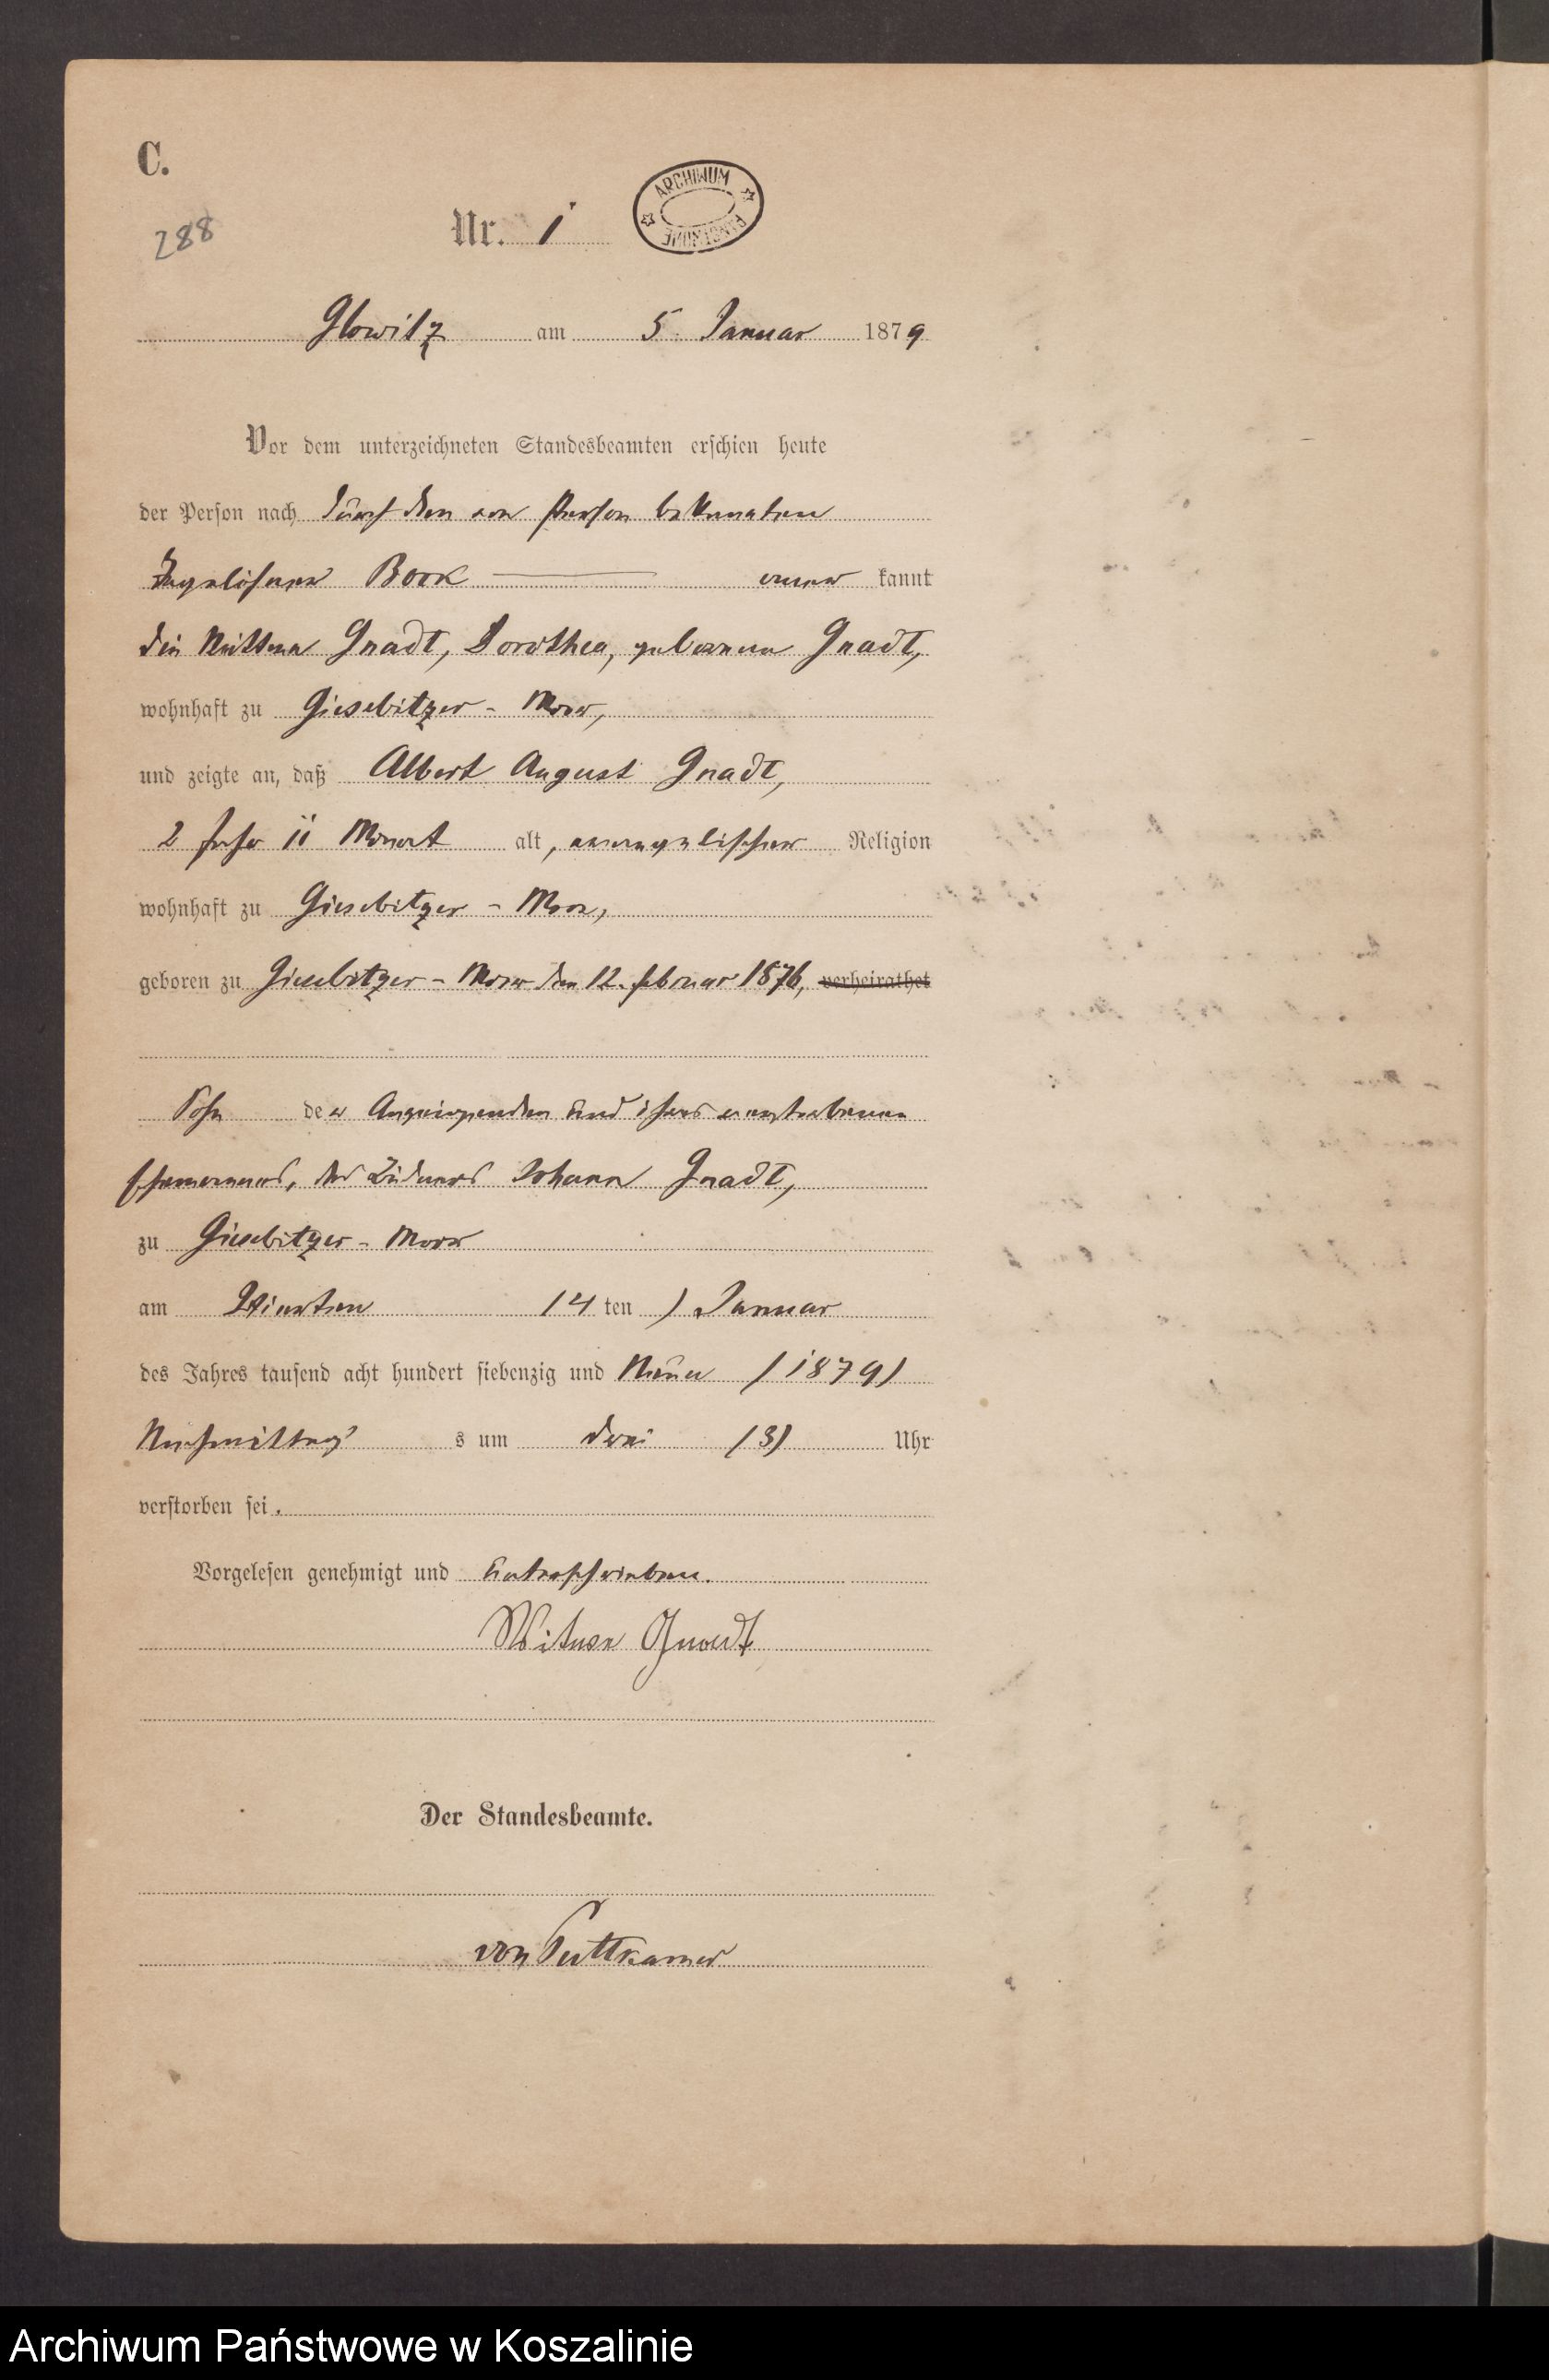 C.
288
Nr. 1
ARCHIWUM PAŃSTWOWE
Glowitz am 5. Januar 1879
Vor dem unterzeichneten Standesbeamten erschien heute
der Person nach durch den von Person bekannten
Tagelöhner Book — aner kannt
die Wittwe Gnadt, Dorothea, geborene Gnadt,
wohnhaft zu Giesebitzer - Moor,
und zeigte an, daß Albert August Gnadt,
2 Jahr 11 Monat alt, evangelischer Religion
wohnhaft zu Giesebitzer - Moor,
geboren zu Giesebitzer - Moor den 12. Februar 1876, verheirathet
Sohn der Anzeigenden und ihres verstorbenen
Ehemannes, des Büdners Johann Gnadt,
zu Giesebitzer - Moor
am Vierten /4 ten ) Januar
des Jahres tausend acht hundert siebenzig und Neun /1879)
Nachmittag s um drei /3) Uhr
verstorben sei.
Vorgelesen genehmigt und unterschrieben.
Witwe Gnadt
Der Standesbeamte.
von Puttkamer
Archiwum Państwowe w Koszalinie